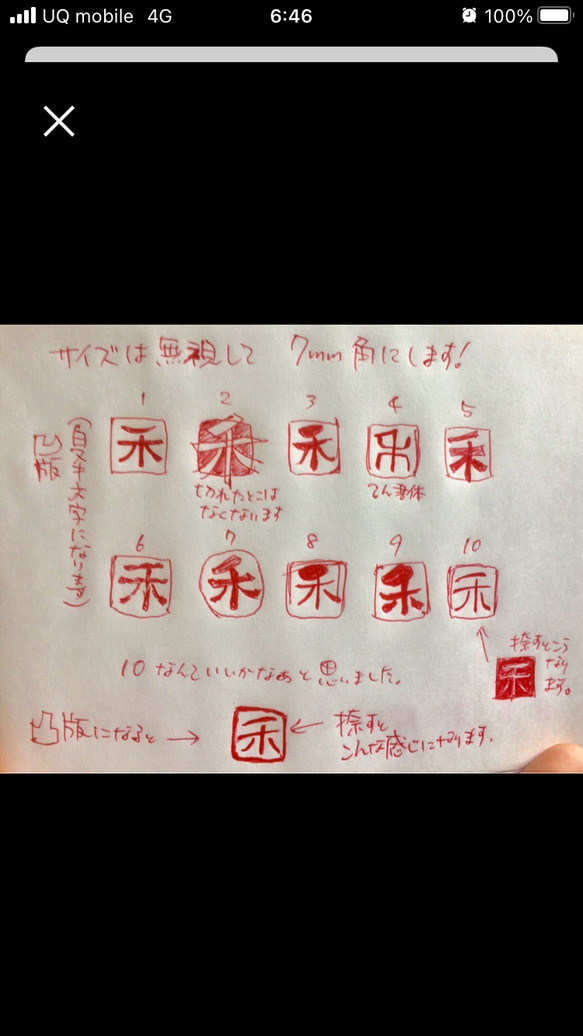 UQ mobile 4G 6:46 100%
サイズは無視して 7mm角にします!
凹版
(白ヌキ文字になります)
1 2 3 4 5
禾 禾 禾 禾 禾
切れたとこは
なくないます
てん書体
6 7 8 9 10
禾 禾 禾 禾 禾
捺すとこう
なり
ます。
禾
10なんていいかなあと思いました。
凸版になると → 禾 ← 捺すと
こんな感じになります。